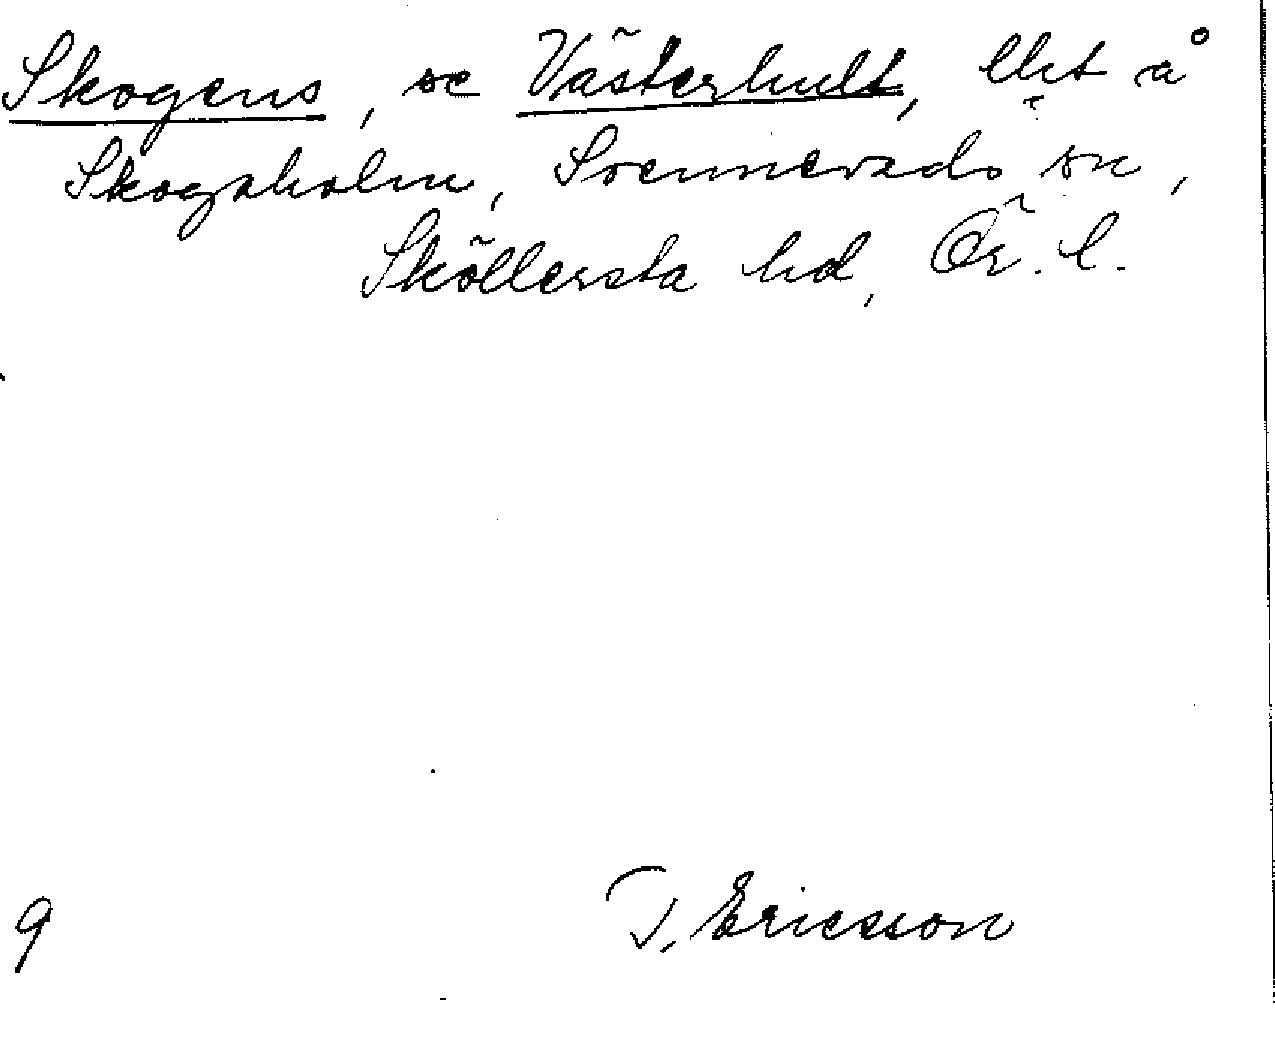 Skogens, se Västerhult, lht å
Skogaholm, Svennevads sn,
Sköllersta hd, Ör. l.
9
T. Ericsson